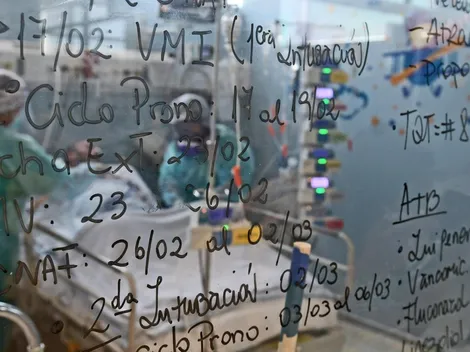 17/02: VMI (1era Intubación)
Ciclo Prono: 17 al 19/02
cha Ext: 23/02
IV: 23 26/02
NAF: 26/02 al 02/03
2da Intubación: 02/03
ciclo Prono: 03/03 al 06/03
- Atra
- Propo
• TQT=#8
ATB
• Imipene
• Vancomic
• Fluconazol
Linezolid